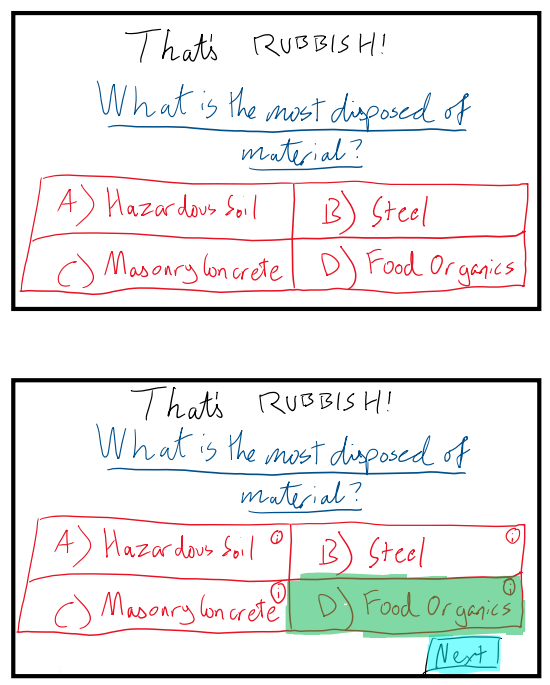 That's RUBBISH!
What is the most disposed of
material?
A) Hazardous Soil
B) Steel
C) Masonry Concrete
D) Food Organics
That's RUBBISH!
What is the most disposed of
material?
A) Hazardous Soil i
B) Steel i
C) Masonry Concrete i
D) Food Organics i
Next